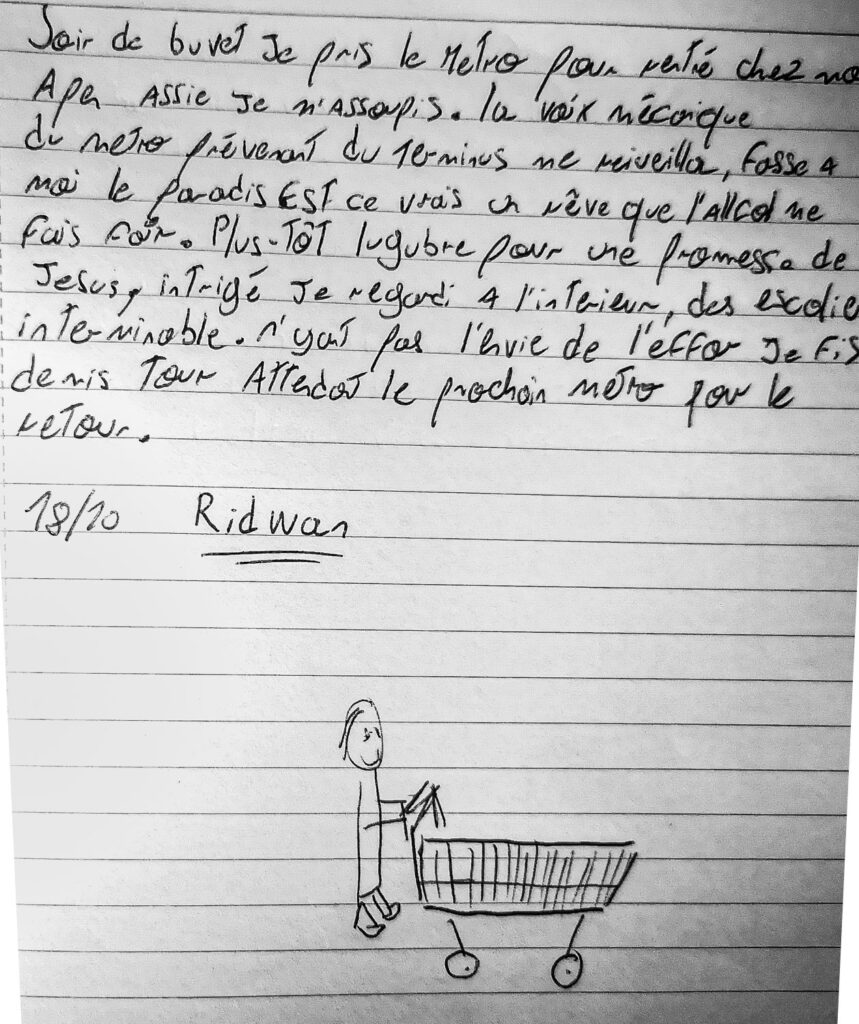 Soir de buvet Je pris le Metro pour rentré chez mo
Aper Assie Je m'Assoupis. la voix mécanique
du metro prévenant du Terminus me reiveilla, fasse a
moi le paradis Est ce vrais un rêve que l'Allcol me
fais fair. Plus-Tôt lugubre pour une promesse de
Jesus, intrigé Je regardi a l'interieur, des escolie
interminable. n'yant pas l'envie de l'effor Je fis
demis Tour Attendat le prochain metro pour le
retour.
18/10 Ridwan